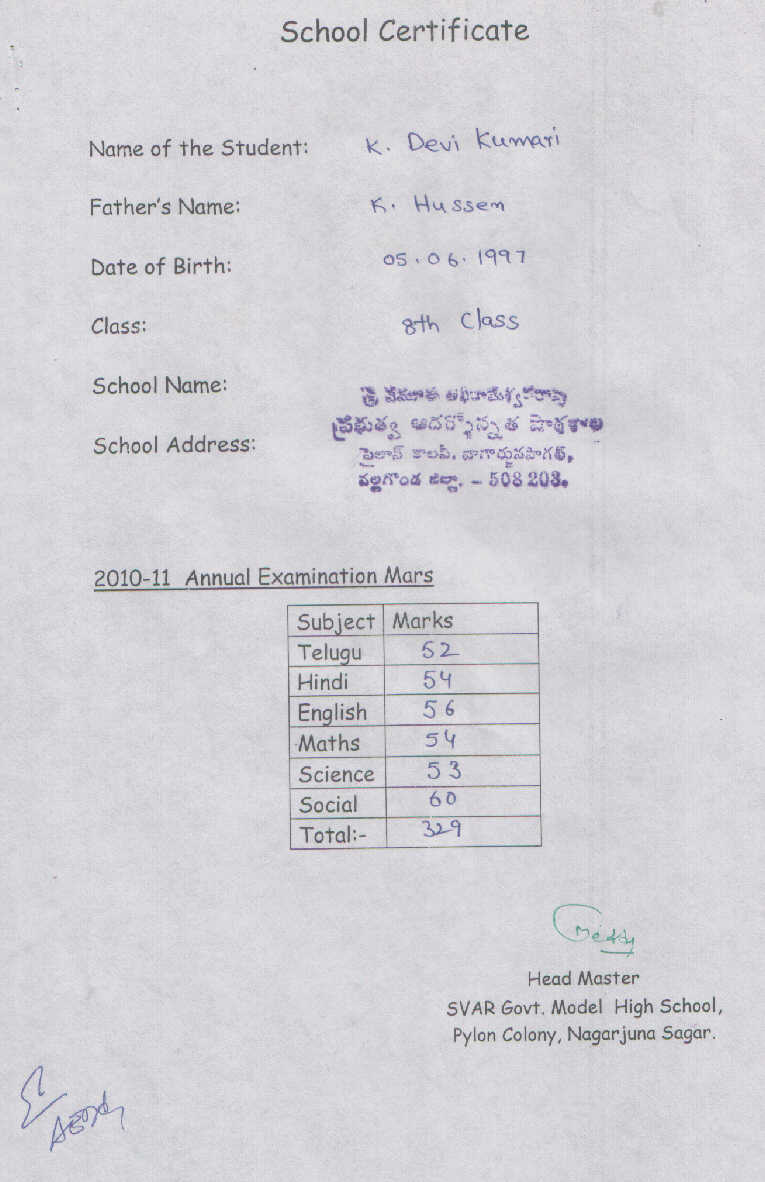 School Certificate
Name of the Student: K. Devi Kumari
Father's Name: K. Hussem
Date of Birth: 05.06.1997
Class: 8th Class
School Name:
శ్రీ వేమూరి
ప్రభుత్వ ఆదర్శోన్నత పాఠశాల
School Address:
పైలాన్ కాలనీ, నాగార్జునసాగర్,
నల్లగొండ జిల్లా. - 508 203.
2010-11 Annual Examination Mars
Subject Marks
Telugu 52
Hindi 54
English 56
Maths 54
Science 53
Social 60
Total:- 329
Head Master
SVAR Govt. Model High School,
Pylon Colony, Nagarjuna Sagar.